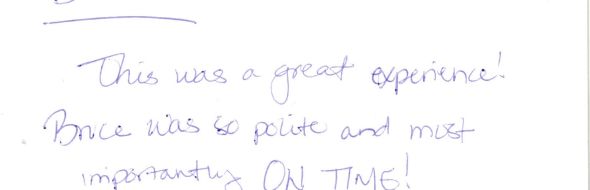 This was a great experience!
Bruce was so polite and most
importantly ON TIME!